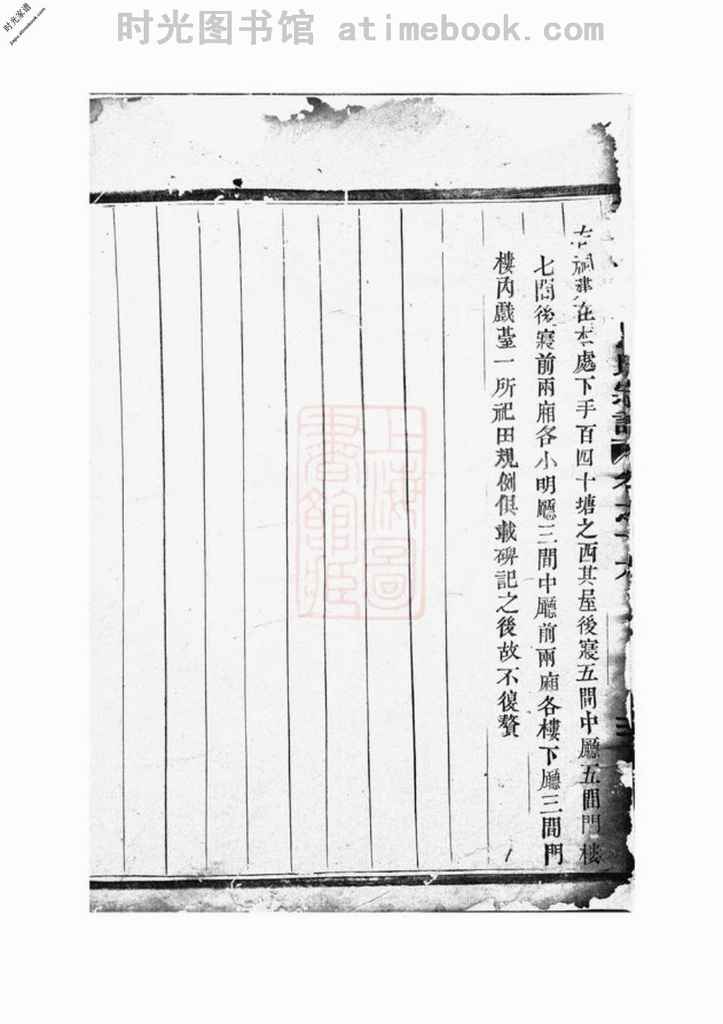 时光图书馆 atimebook.com
时光家谱
jiapu.atimebook.com
右祠建在本處下手百四十塘之西其屋後寢五間中廳五間門樓
七間後寢前兩廂各小明廳三間中廳前兩廂各樓下廳三間門
樓內戲臺一所祀田規例俱載碑記之後故不復贅
上海圖
書館藏
氏宗譜